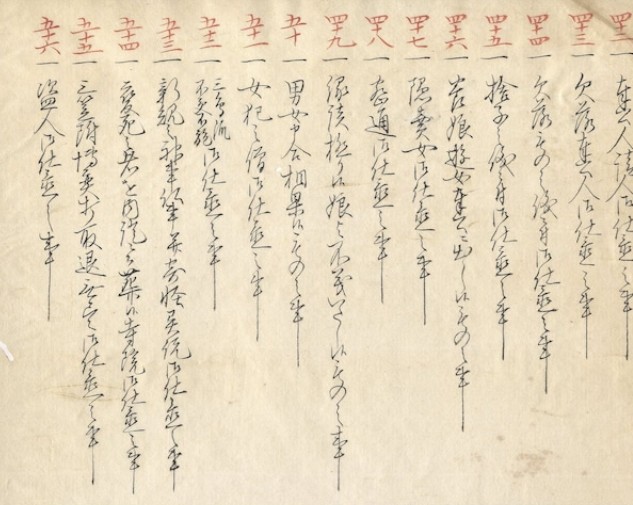 四十二 一 奉公人請人御仕置之事
四十三 一 欠落奉公人御仕置之事
四十四 一 欠落もの之儀ニ付御仕置之事
四十五 一 捨子之儀ニ付御仕置之事
四十六 一 養娘遊女奉公ニ出し候もの之事
四十七 一 隠売女御仕置之事
四十八 一 密通御仕置之事
四十九 一 縁談極候娘と不義いたし候もの之事
五十 一 男女申合相果候もの之事
五十一 一 女犯之僧御仕置之事
五十二 一 三鳥派不受不施御仕置之事
五十三 一 新規之神事仏事并奇怪異説御仕置之事
五十四 一 変死之者を内証ニ而葬候寺院御仕置之事
五十五 一 三笠附博奕打取退無尽御仕置之事
五十六 一 盗人御仕置之事